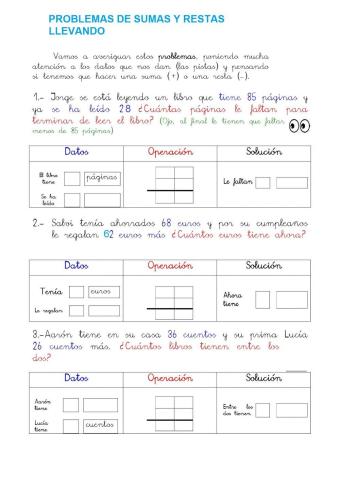 PROBLEMAS DE SUMAS Y RESTAS
LLEVANDO
Vamos a averiguar estos problemas, poniendo mucha
atención a los datos que nos dan (las pistas) y pensando
si tenemos que hacer una suma (+) o una resta (-).
1.- Jorge se está leyendo un libro que tiene 85 páginas y
ya se ha leído 28 ¿Cuántas páginas le faltan para
terminar de leer el libro? (Ojo, al final le tienen que faltar
menos de 85 páginas)
Datos Operación Solución
El libro
tiene páginas
Se ha
leído
Le faltan
2.- Salvi tenía ahorrados 68 euros y por su cumpleaños
le regalan 62 euros más ¿Cuántos euros tiene ahora?
Datos Operación Solución
Tenía euros
Le regalan
Ahora
tiene
3.-Aarón tiene en su casa 36 cuentos y su prima Lucía
26 cuentos más. ¿Cuántos libros tienen entre los
dos?
Datos Operación Solución
Aarón
tiene
Lucía
tiene cuentos
Entre los
dos tienen